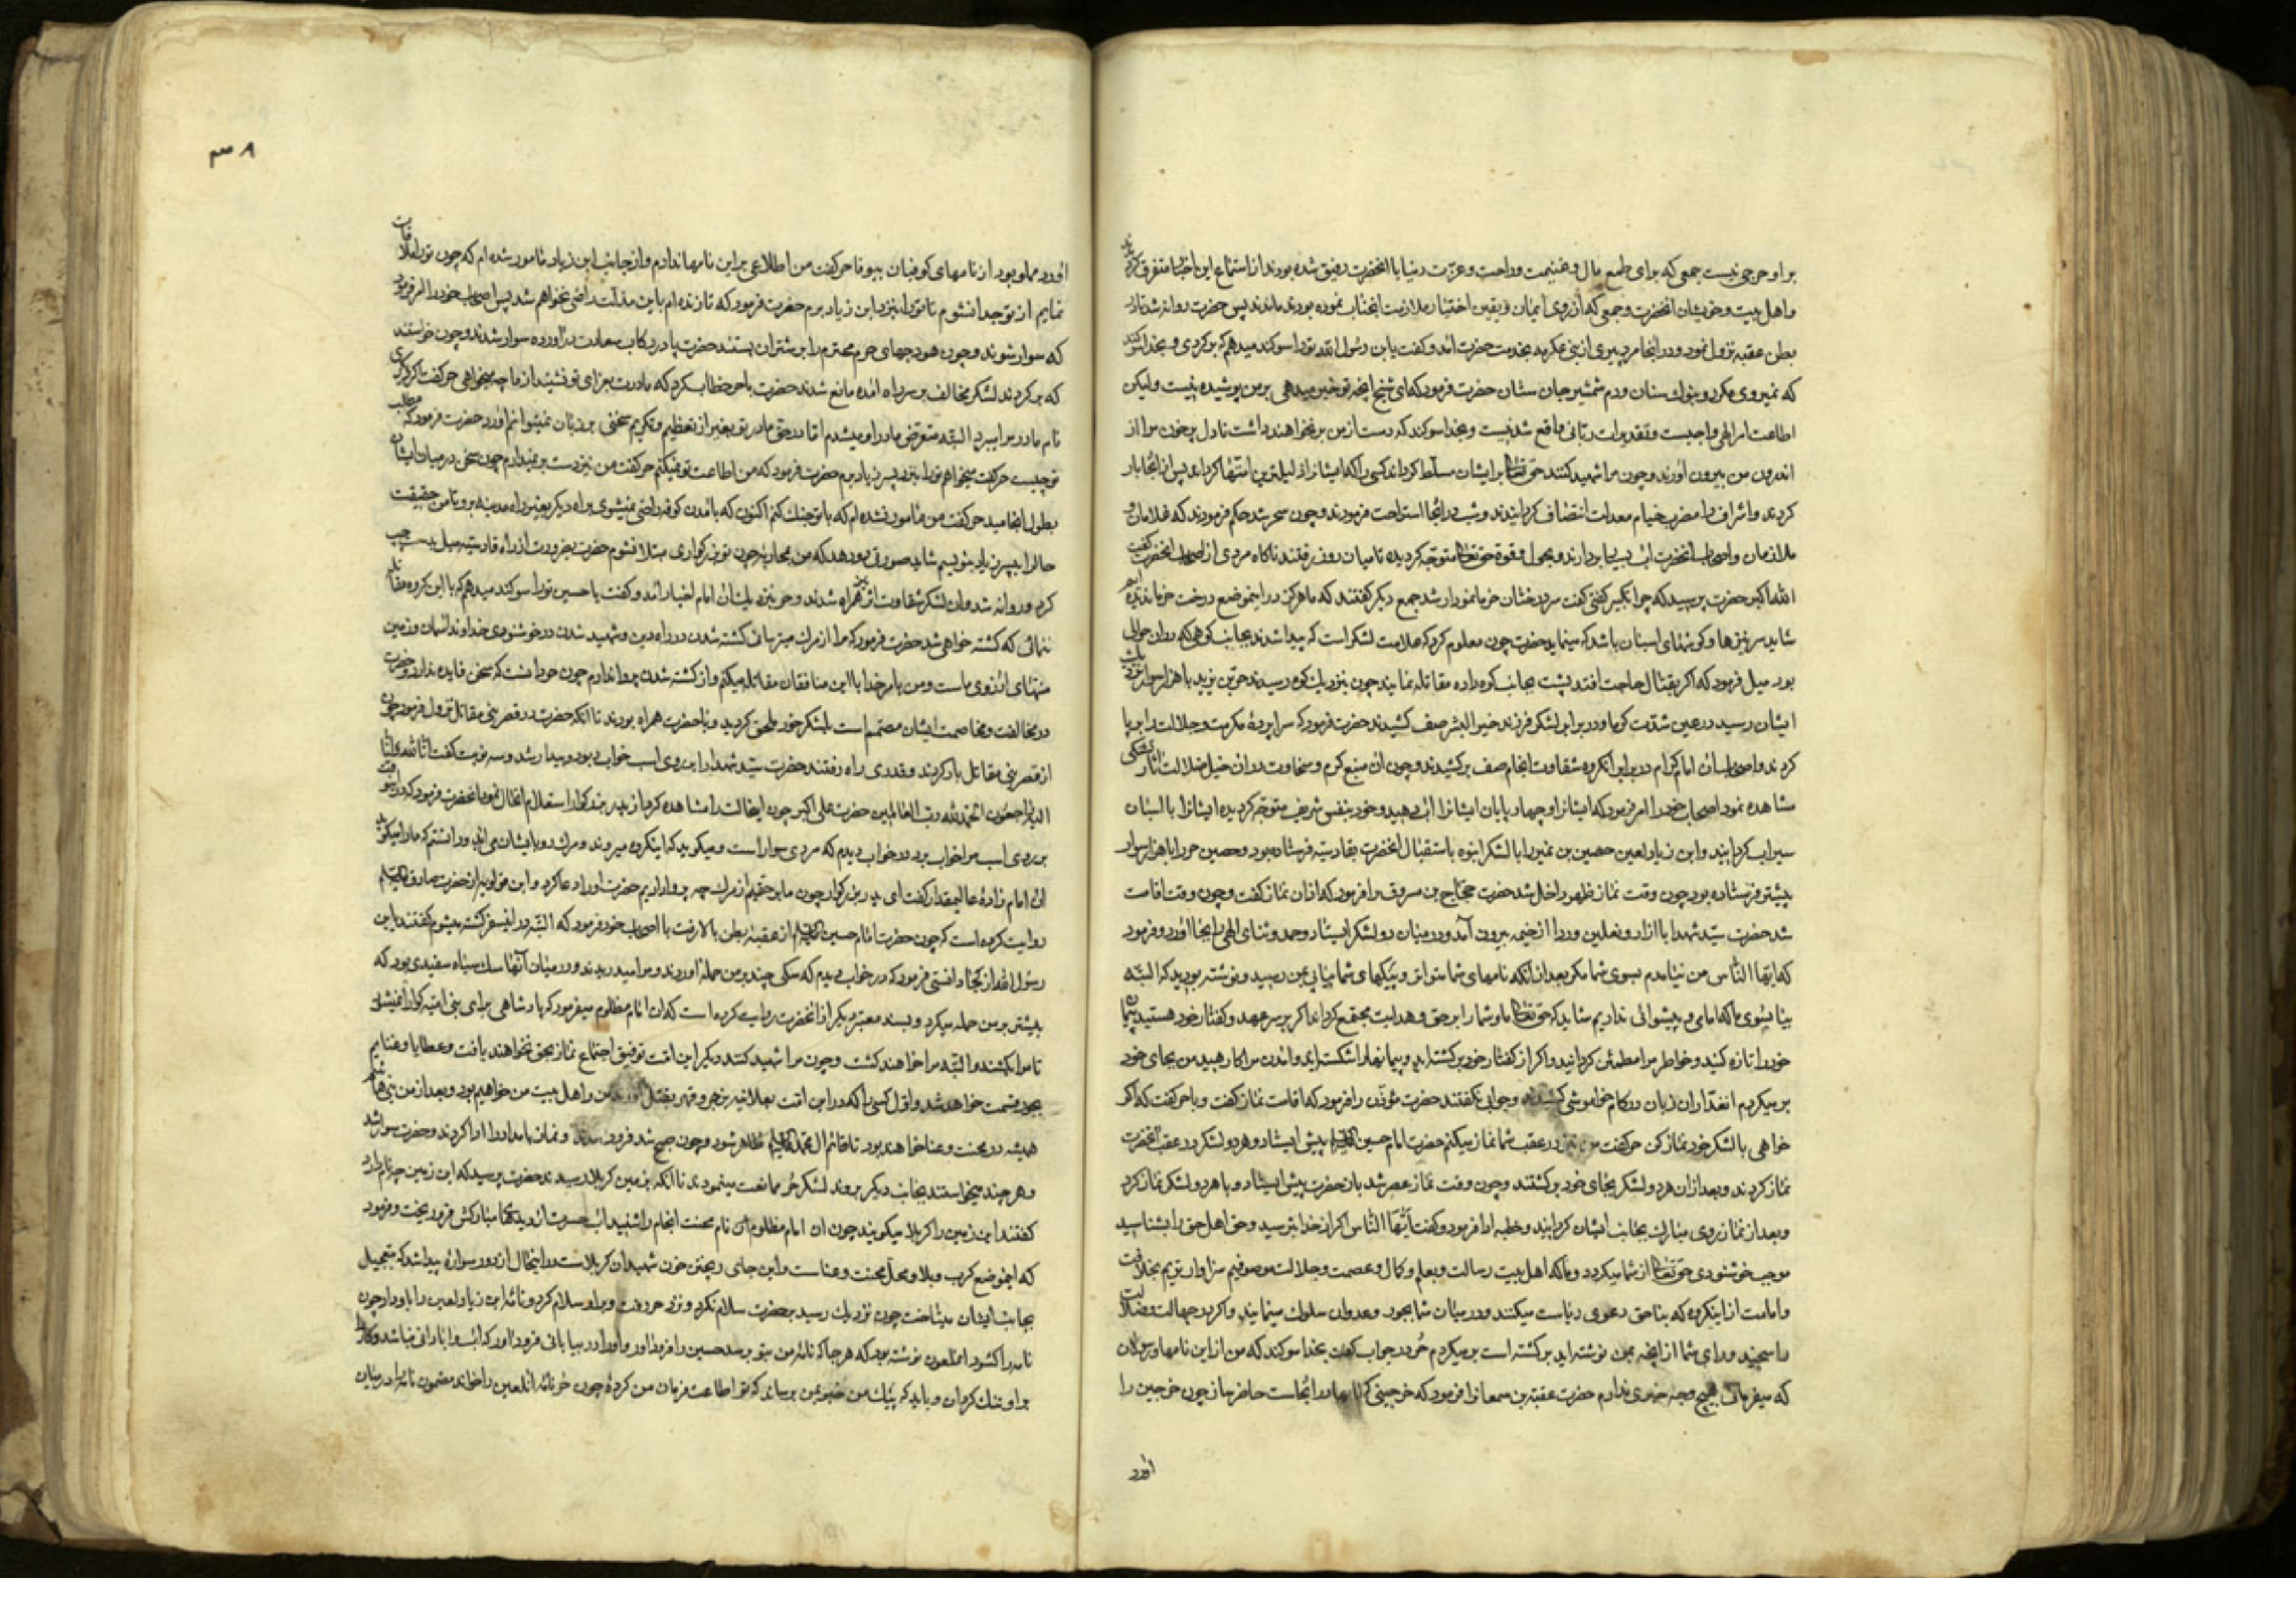 بر او حرجی نیست جمعی که برای طمع مال و غنیمت و راحت و عزت دنیا با انحضرت رفیق شده بودند از استماع این اخبار متفرق کردیدند
و اهل بیت و خویشان انحضرت و جمعی که از روی ایمان و یقین اختیار ملازمت انجناب نموده بودند ماندند پس حضرت روانه شد تا در
بطن عقبه نزول نمود و در انجا مرد پیری از بنی عکرمه بخدمت حضرت امد و کفت یابن رسول الله تو را سوکند میدهم که بر کردی و بخدا سوکند
که نمیروی مکر رو بنوك سنان و دم شمشیر جان ستان حضرت فرمود که ای شیخ انچه تو خبر میدهی بر من پوشیده نیست و لیکن
اطاعت امر الهی واجبست و تقدیرات ربانی واقع شدنیست و بخدا سوکند که دست از من بر نخواهند داشت تا دل پرخون مرا از
اندرون من بیرون اورند و چون مرا شهید کنند حق تعالی بر ایشان مسلط کرداند کسی را که ایشانرا ذلیلترین امتها کرداند پس از انجا بار
کردند و اشراف را مضرب خیام معدلت انتضاف کردانیدند و شب در انجا استراحت فرمودند و چون سحر شد حکم فرمودند که غلامان و
ملازمان و اصحاب انحضرت اب بسیا بردارند و بحول و قوة حق تعالی متوجه کردیده تا میان روز رفتند ناکاه مردی از اصحاب انحضرت کفت
الله اکبر حضرت پرسید که چرا تکبیر کفتی کفت سر درختان خرما نمودار شد جمع دیکر کفتند که ما هرکز در اینموضع درخت خرما ندیده ایم
شاید سر نیزها و کوشهای اسبان باشد که مینماید حضرت چون معلوم کرد که علامت لشکر است که پیدا شدند بجانب کوهی که در ان حوالی
بود میل فرمود که اکر بقتال حاجت افتد پشت بجانب کوه داده مقاتله نمایند چون بنزدیك کوه رسیدند حر بن یزید با هزار سوار نزدیك
ایشان رسید در عین شدت کرما و در برابر لشکر فرزند خیر البشر صف کشیدند حضرت فرمود که سراپردۀ مکرمت و جلالت را بر پا
کردند و اصحاب ان امام کرام در برابر انکروه شقاوت انجام صف بر کشیدند و چون ان منبع کرم و سخاوت در ان خیل ضلالت اثار تشنکی
مشاهده نمود اصحاب خود را امر فرمود که ایشان را و چهار پایان ایشانرا اب دهید و خود بنفس شریف متوجه کردیده ایشانرا با اسبان
سیراب کردانید و ابن زیاد لعین حصین بن نمیر را با لشکر انبوه باستقبال انحضرت بقادسیه فرستاده بود و حصین حر را با هزار سوار
پیشتر فرستاده بود چون وقت نماز ظهر داخل شد حضرت حجاج بن مسروق را فرمود که اذان نماز کفت و چون وقت اقامت
شد حضرت سید شهدا با ازار و نعلین و ردا از خیمه بیرون آمد و در میان دو لشکر ایستاد و حمد و ثنای الهی را بجا اورد و فرمود
که ایها الناس من نیامدم بسوی شما مکر بعد از انکه نامهای شما متواتر و پیکهای شما پیاپی بمن رسید و نوشته بودید که البته
بیا بسوی ما که امامی و پیشوائی نداریم شاید که حق تعالی ما و شما را بر حق و هدایت مجتمع کرداند اکر بر سر عهد و کفتار خود هستید پیمان
خود را تازه کنید و خاطر مرا مطمئن کردانید و اکر از کفتار خود بر کشته اید و پیمانها را شکسته اید و امدن مرا کارهید من بجای خود
بر میکردم انغداران زبان در کام خواموشی کشیدند و جوابی نکفتند حضرت مؤذن را فرمود که اقامت نماز کفت و با حر کفت که اکر
خواهی با لشکر خود نماز کن حر کفت من نیز در عقب شما نماز میکنم حضرت امام حسین علیه السلام پیش ایستاد و هر دو لشکر در عقب انحضرت
نماز کردند و بعد از ان هر دو لشکر بجای خود بر کشتند و چون وقت نماز عصر شد باز حضرت پیش ایستاد و با هر دو لشکر نماز کرد
و بعد از نماز روی مبارك بجانب ایشان کردانید و خطبه ادا فرمود و کفت ایها الناس اکر از خدا بترسید و حق اهل حق را بشناسید
موجب خوشنودی حق تعالی از شما میکردد و ما که اهل بیت رسالت و بعلم و کمال و عصمت و جلالت موصوفیم سزاوار تریم بخلافت
و امامت از اینکروه که بناحق دعوی ریاست میکنند و در میان شما بجور و عدوان سلوك مینمایند و اکر در جهالت و ضلالت
راسخید و رای شما از انچه بمن نوشته اید بر کشته است بر میکردم حُر در جواب کفت بخدا سوکند که من از این نامها و رسولان
که میفرمائی هیچ وجه خبری ندارم حضرت عقبة بن سمعانرا فرمود که خرجینی که نامها در انجاست حاضر ساز چون خرجین را
اورد
۳۰۸
اورد مملو بود از نامهای کوفیان بیوفا حر کفت من اطلاعی بر این نامها ندارم و از جانب ابن زیاد مامور شده ام که چون تو را ملاقات
نمایم از تو جدا نشوم تا تو را بنزد ابن زیاد برم حضرت فرمود که تا زنده ام باین مذلت راضی نخواهم شد پس اصحاب خود را امر فرمود
که سوار شوند و چون هودجهای حرم محترم را بر شتران بستند حضرت پا در رکاب سعادت در اورده سوار شدند و چون خواستند
که بر کردند لشکر مخالف بر سر راه امده مانع شدند حضرت با حر خطاب کرد که مادرت بعزای تو نشیند از ما چه میخواهی حر کفت اکر دیکری
نام مادر مرا میبرد البته متعرض مادر او میشدم اما در حق مادر تو بغیر از تعظیم و تکریم سخنی بر زبان نمیتوانم اورد حضرت فرمود که مطلب
تو چیست حر کفت میخواهم تو را بنزد پسر زیاد برم حضرت فرمود که من اطاعت تو نمیکنم حر کفت من نیز دست بر نمیدارم چون سخن در میان ایشان
بطول انجامید حر کفت من مامور نشده ام که با تو جنك کنم اکنون که بامدن کوفه راضی نمیشوی براه دیکر بغیر راه مدینه برو تا من حقیقت
حال را به پسر زیاد بنویسم شاید صورتی رو دهد که من بمحاربه چون تو بزرکواری مبتلا نشوم حضرت بضرورت از راه قادسیه میل بدست چپ
کرد و روانه شد و ان لشکر شقاوت اثر همراه شدند و حر بنزدیك ان امام اخیار امد و کفت یا حسین تو را سوکند میدهم که با این کروه مقاتله
ننمائی که کشته خواهی شد حضرت فرمود که مرا از مرك میترسانی کشته شدن در راه دین و شهید شدن در خوشنودی خداوند اسمان و زمین
منتهای ارزوی ماست و من بامر خدا با این منافقان مقاتله میکنم و از کشته شدن پروا ندارم چون حر دانست که سخن فایده ندارد و حضرت
در مخالفت و مخاصمت ایشان مصتمم است بلشکر خود ملحق کردید و با حضرت همراه بودند تا انکه حضرت در قصر بنی مقاتل نزول فرمود چون
از قصر بنی مقاتل بار کردند و قدری راه رفتند حضرت سید شهدا را بر روی اسب خواب ربود و بیدار شد و سه نوبت کفت انا لله و انا
الیه راجعون الحمدلله رب العالمین حضرت علی اکبر چون اینحالت را مشاهده کرد از پدر بزرکوار استعلام انحال نمود انحضرت فرمود که در اینوقت
بر روی اسب مرا خواب برد در خواب دیدم که مردی سوار است و میکوید که اینکروه میروند و مرك رو بایشان می اید و دانستم که ما را میکوید
ان امام زادۀ عالیمقدار کفت ای پدر بزرکوار چون ما بر حقیم از مرك چه پروا داریم حضرت او را دعا کرد و ابن قولویه از حضرت صادق علیه السلام
روایت کرده است که چون حضرت امام حسین علیه السلام از عقبۀ بطن بالا رفت با اصحاب خود فرمود که البته در اینسفر کشته میشوم کفتند یابن
رسول الله از کجا دانستی فرمود که در خواب دیدم که سکی چند بر من حمله اوردند و مرا میدریدند و در میان آنها سك سیاه سفیدی بود که
بیشتر بر من حمله میکرد و بسند معتبر دیکر از انحضرت روایت کرده است که ان امام مظلوم میفرمود که پادشاهی برای بنی امیه کوارا نمیشود
تا مرا بکشند و البته مرا خواهند کشت و چون مرا شهید کنند دیکر این امت توفیق اجتماع نماز بحق نخواهند یافت و عطایا و غنایم
بجور قسمت خواهد شد و اول کسی را که در این امت بعلانیه بزجر و قهر بقتل اورند من و اهل بیت من خواهیم بود و بعد از من بنی هاشم
همیشه در محنت و عنا خواهند بود تا قائم ال محمد علیه السلام ظاهر شود و چون صبح شد فرود امدند و نماز بامداد را ادا کردند و حضرت سوار شد
و هر چند میخواستند بجانب دیکر بروند لشکر حُر ممانعت مینمودند تا انکه بزمین کربلا رسیدند حضرت پرسید که این زمین چه نام دارد
کفتند این زمین را کربلا میکویند چون ان امام مظلوم ان نام محنت انجام را شنید اب حسرت از دیدهای مبارکش فرو ریخت و فرمود
که اینموضع کرب و بلا و محل محنت و عناست و این جای ریختن خون شهیدان کربلاست در اینحال از دور سواره پیدا شد که بتعجیل
بجانب ایشان میشتافت چون نزدیك رسید بر حضرت سلام نکرد و نزد حر رفت و بر او سلام کرد و نامه ابن زیاد لعین را باو داد چون
نامه را کشود انملعون نوشته بود که هر جا که نامۀ من بتو برسد حسین را فرود اور و او را در بیابانی فرود اور که اب و ابادانی نباشد و کار را
بر او تنك کردان و باید که پیك من خبر بمن برساند که تو اطاعت فرمان من کردۀ چون حر نامه انلعین را خواند مضمون نامه را در میان